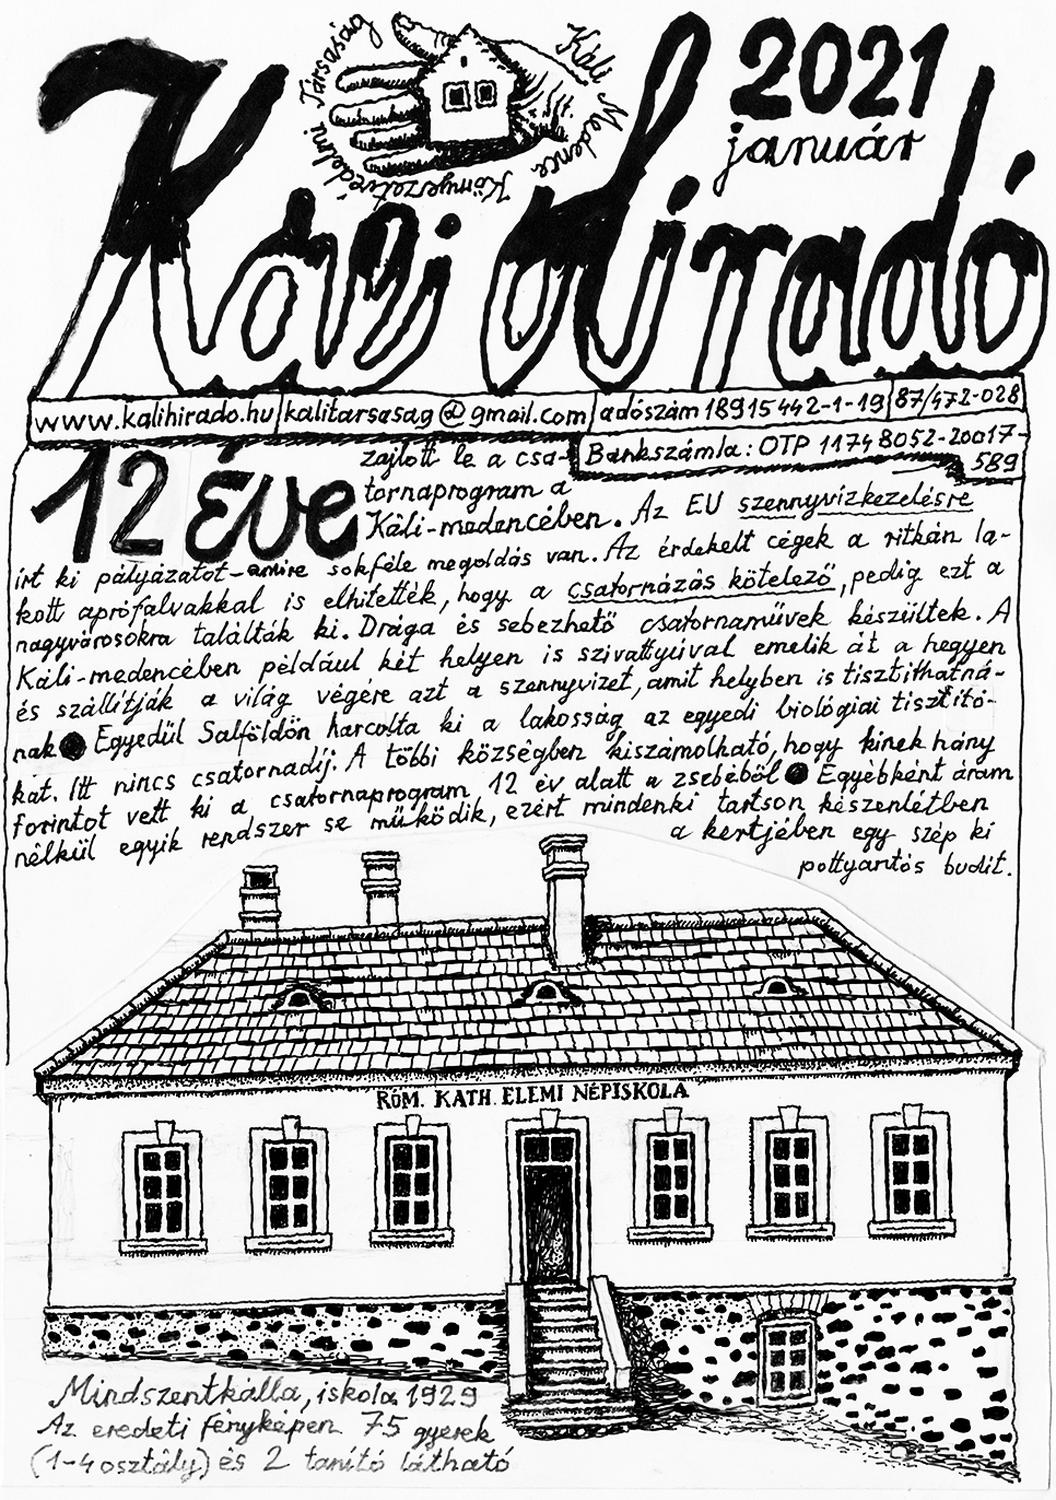 Káli Medence
Környezetvédelmi Társaság
2021
január
Kázi Híradó
www.kalihirado.hu kalitarsasag@gmail.com adószám 18915442-1-19 87/472-028
Bankszámla: OTP 11748052-20017-
589
12 éve zajlott le a csa-
tornaprogram a
Káli-medencében. Az EU szennyvízkezelésre
írt ki pályázatot-amire sokféle megoldás van. Az érdekelt cégek a ritkán la-
kott aprófalvakkal is elhitették, hogy a csatornázás kötelező, pedig ezt a
nagyvárosokra találták ki. Drága és sebezhető csatornaművek készültek. A
Káli-medencében például két helyen is szivattyúval emelik át a hegyen
és szállítják a világ végére azt a szennyvizet, amit helyben is tisztíthatná-
nak ● Egyedül Salföldön harcolta ki a lakosság az egyedi biológiai tisztító-
kat. Itt nincs csatornadíj. A többi községben kiszámolható, hogy kinek hány
forintot vett ki a csatornaprogram 12 év alatt a zsebéből ● Egyébként áram
nélkül egyik rendszer se működik, ezért mindenki tartson készenlétben
a kertjében egy szép ki
pottyantós budit.
RÓM. KATH. ELEMI NÉPISKOLA
Mindszentkálla, iskola 1929
Az eredeti fényképen 75 gyerek
(1-4 osztály) és 2 tanító látható